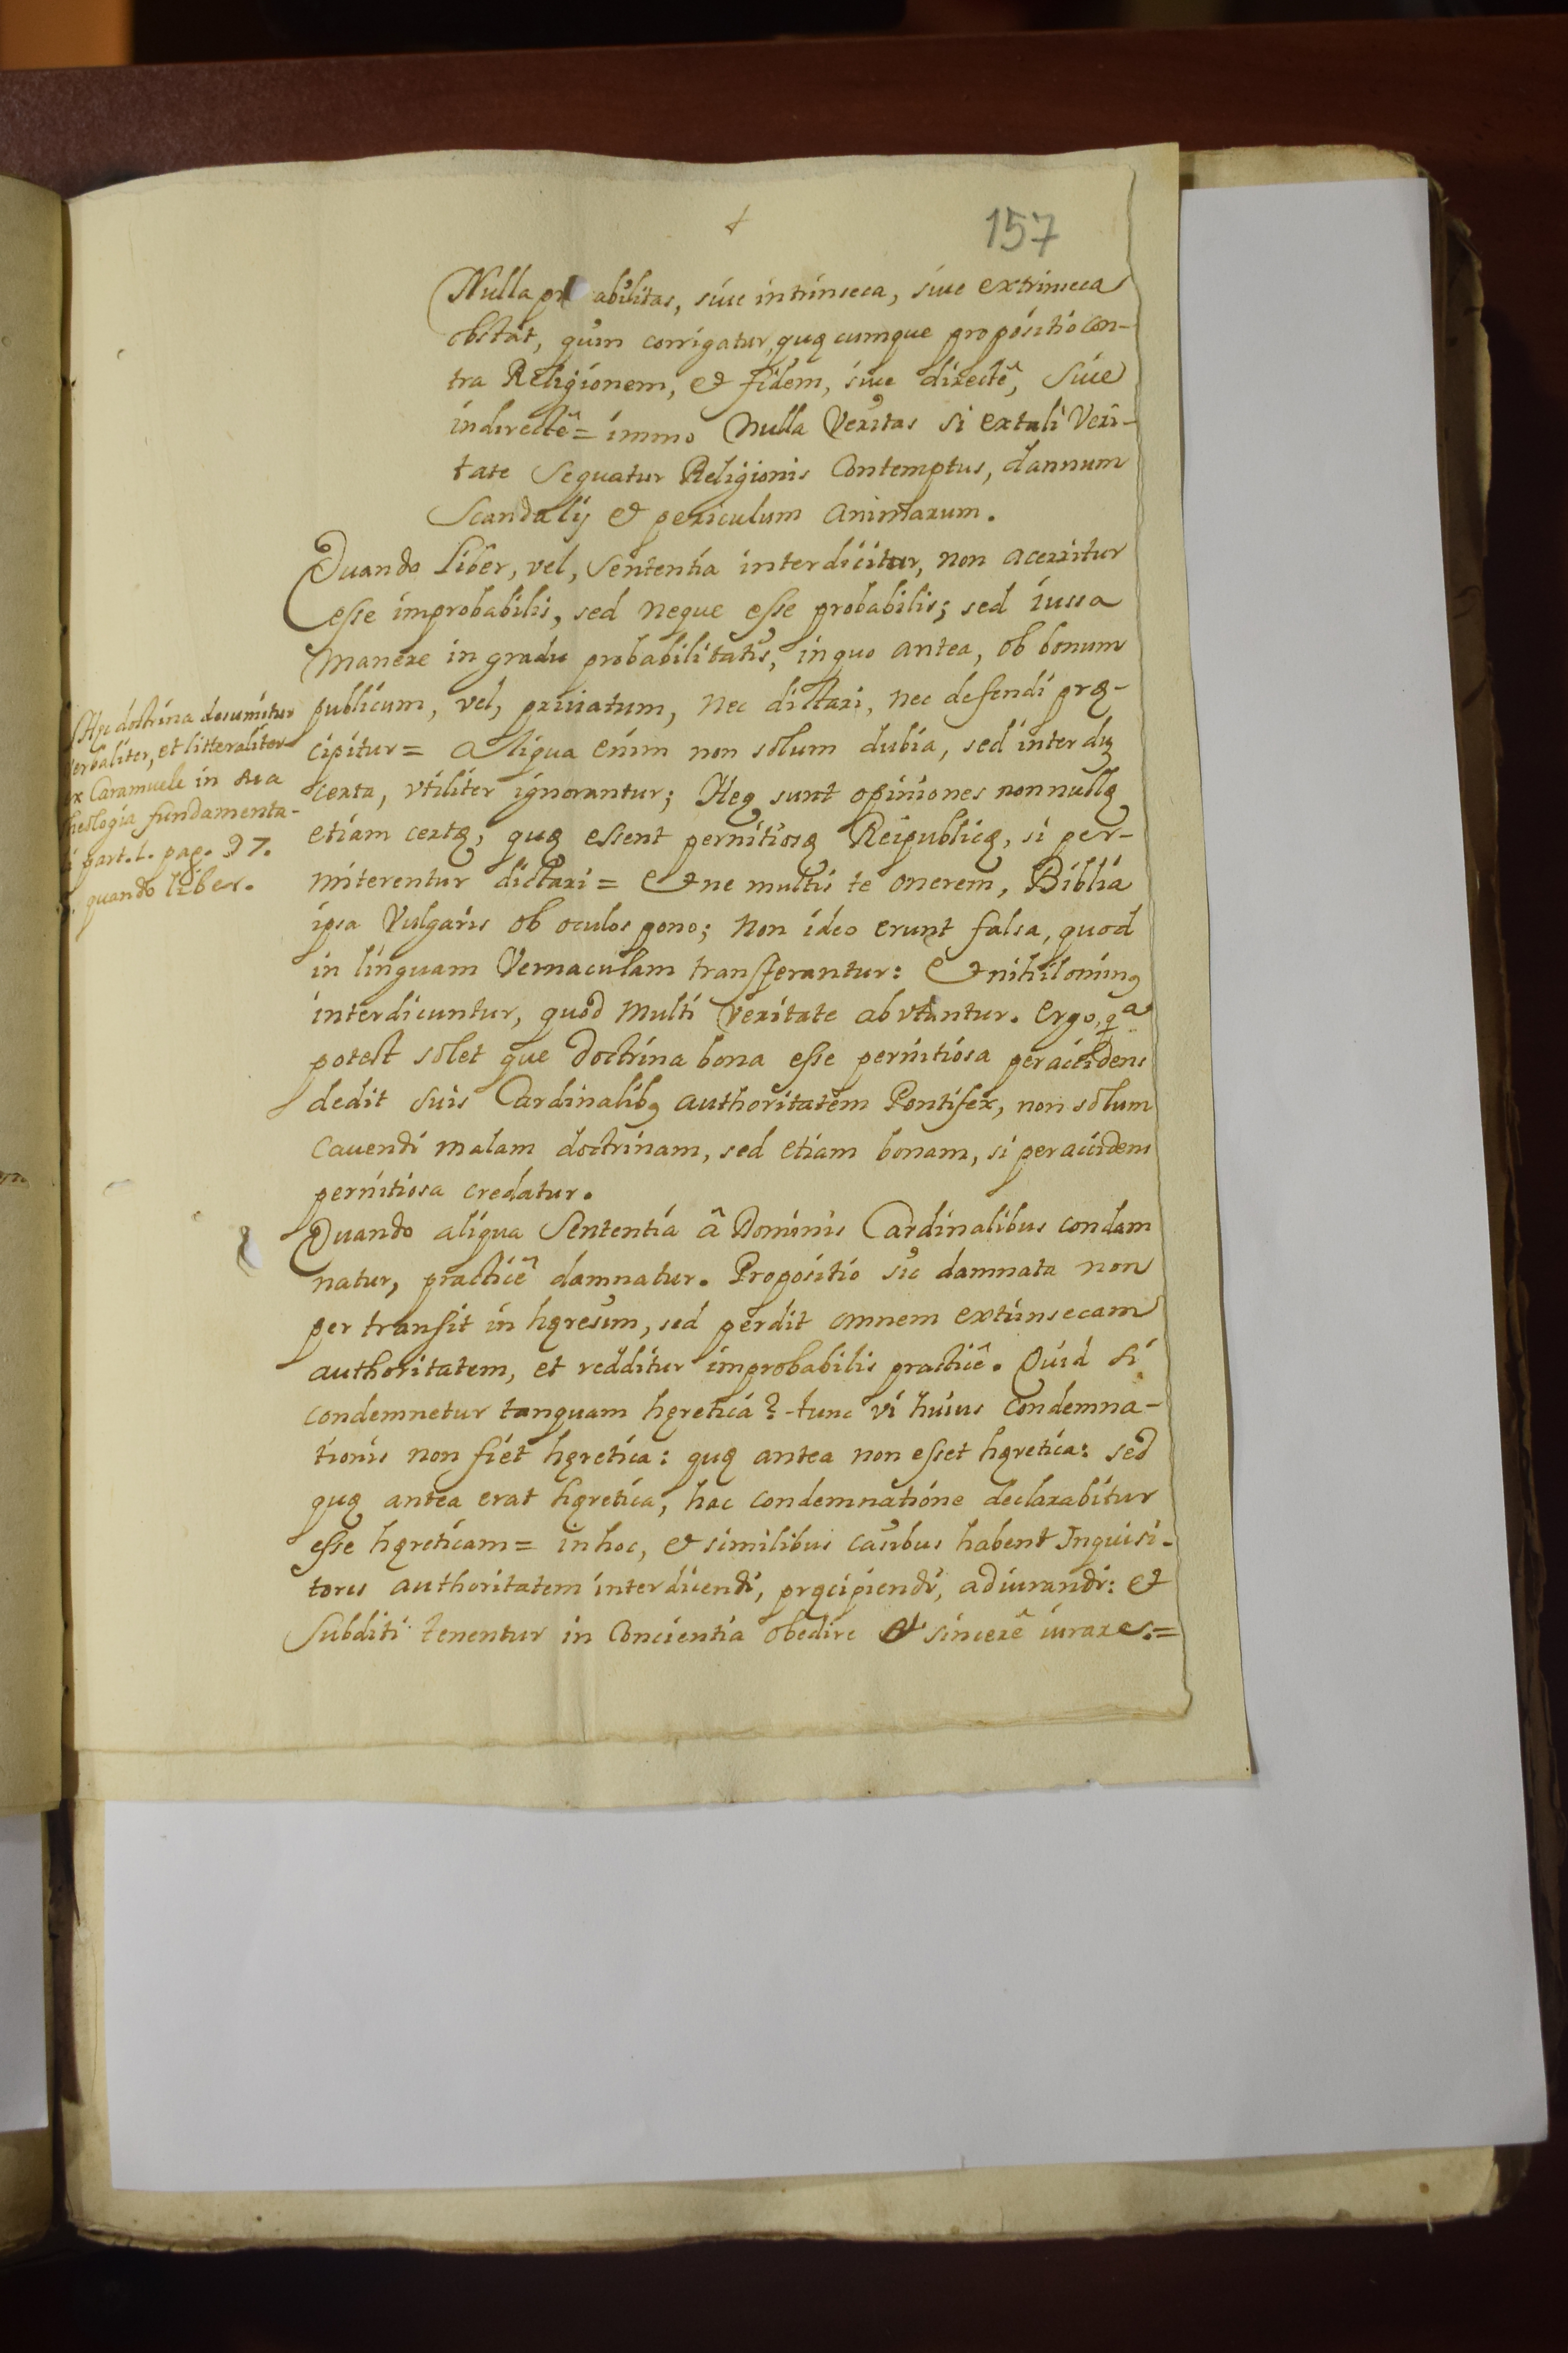 157
Nulla pr abilitas, siue intrinseca, siue extrinseca
obstat, quin corrigatur, quęcumque propositio con-
tra Religionem, & fidem, siue directê, siue
indirectê = immo nulla Veritas si ex tali Veri-
tate sequatur Religionis Contemptus, dannum
Scandalij & periculum animarum.
Quando liber, vel, sententia interdicitur, non aceritur
esse improbabilis, sed neque esse probabilis; sed iussa
manere in gradu probabilitatis, in quo antea, ob bonum
publicum, vel, priuatum, nec dictari, nec defendi prę-
cipitur = aliqua enim non sòlum dubia, sed interdu
certa, vtiliter ignorantur; Heę sunt opiniones nonnullę
etiam certę, quę essent pernitiosę Reipublicę, si per-
miterentur dictari = & ne multis te onerem, Biblia
ipsa Vulgaris ob oculos pono; non ideo erunt falsa, quod
in linguam Vernaculam transferantur: & nihilominꝰ
interdicuntur, quod multi veritate abvtantur. ergo, qª
potest sòlet que doctrina bona esse pernitiosa per accidens
dedit suis Cardinalibꝰ authoritatem Pontifex, non sòlum
cauendi malam doctrinam, sed etiam bonam, si per accidens
pernitiosa credatur.
Quando aliqua Sententia â Dominis Cardinalibus condam
natur, practicê damnatur. Propositio sic damnata non
per transit in hęresim, sed perdit omnem extinsecam
authoritatem, et redditur improbabilis practicê. Quid si
condemnetur tanquam hęretica? tunc vi huius condemna-
tionis non fiet hęretica: quę antea non esset hęretica: sed
quę antea erat hęretica, hac condemnatione declarabitur
esse hęreticam = in hoc, & similibus casibus habent Inquisi-
tores authoritatem interdicendi, pręcipiendi, adiurandi: &
subditi tenentur in Concientia obedire & sincerê iurare.=
Hęc doctrina desumitur
verbaliter, et litteraliter
ex Caramuele in sua
theologia fundamenta-
li part. 1. pag. 97.
quando liber.